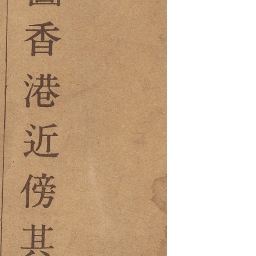 圖香港近傍其